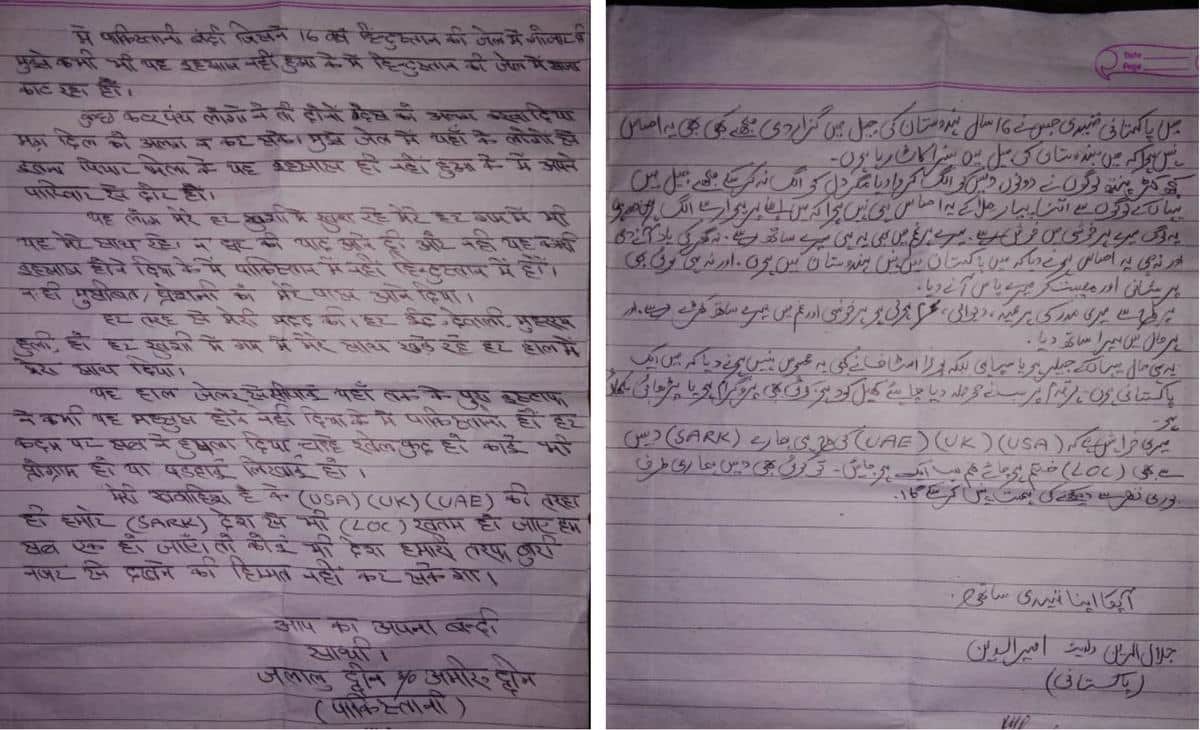 में पाकिस्तानी बंदी जिसने 16 वर्ष हिन्दुस्तान की जेल में गुजार दी
मुझे कभी भी यह इहसास नहीं हुआ के में हिन्दुस्तान की जेल में सजा
काट रहा हों।
कुछ कटर पंथ लोगों ने तो दोनों देश को अलग करवा दिया
मगर दिल को अलग न कर सके। मुझे जेल में यहाँ के लोगों से
इतना पियार मिला के यह इहसास ही नहीं हुआ के में अपने
परिवार से दौर हों।
यह लोग मेरे हर खुशी में खुश रहे मेरे हर गम में भी
यह मेरे साथ रहे। न घर की याद आने दी और नही यह कभी
इहसास होने दिया के में पाकिस्तान में नहीं हिन्दुस्तान में हों।
न ही मुसीबत, प्रेशानी को मेरे पास आने दिया।
हर तरह से मेरी मदद की। हर ईद, देवाली, मुहरम
हुली, हो हर खुशी में गम में मेरे साथ खड़े रहे हर हाल में
मेरा साथ दिया।
यह हाल जेलर से सीपाई यहाँ तक के पुरा इस्ताफ
ने कभी यह महसुस होने नही दिया के में पाकिस्तानी हों हर
कदम पर सब ने हुसला दिया चाहे खेलकुद हो कोई भी
प्रोग्राम हो या पड़हाई लिखाई हो।
मेरी खवाहिश है के (USA) (UK) (UAE) की तरहा
ही हमारे (SARK) देश से भी (LOC) खतम हो जाए हम
सब एक हो जाएं। तो कोई भी देश हमारी तरफ बुरी
नजर से देखने की हिम्मत नहीं कर सके गा।
आप का अपना बन्दी
साथी।
जलालु द्दीन S/o अमीरु द्दीन
(पाकिस्तानी)
Date
Page
میں پاکستانی قیدی جس نے 16 سال ہندوستان کی جیل میں گزار دی مجھے کبھی بھی یہ احساس
نہیں ہوا کہ میں ہندوستان کی جیل میں سزا کاٹ رہا ہوں۔
کچھ کٹر پنتھ لوگوں نے دونوں دیس کو الگ کروا دیا مگر دل کو الگ نہ کر سکے مجھے جیل میں
یہاں کے لوگوں سے اتنا پیار ملا کے یہ احساس ہی نہیں ہوا کہ میں اپنے پریوار سے الگ ہوں
یہ لوگ میرے ہر خوشی میں خوش رہے۔ میرے ہر غم میں بھی یہ میرے ساتھ رہے۔ نہ گھر کی یاد آنے دی
اور نہ ہی یہ احساس ہونے دیا کہ میں پاکستان میں نہیں ہندوستان میں ہوں۔ اور نہ ہی کوئی بھی
پریشانی اور مصیبت کو میرے پاس آنے دیا۔
ہر طرح سے میری مدد کی ہر عید، دیوالی، محرم ہولی ہو ہر خوشی اور غم میں میرے ساتھ کھڑے رہے۔ اور
ہر حال میں میرا ساتھ دیا۔
یہی حال یہاں کے جیلر ہو یا سپاہی بلکہ پورا اسٹاف نے کبھی یہ محسوس نہیں ہونے دیا کہ میں ایک
پاکستانی ہوں ہر قدم پر سب نے حوصلہ دیا چاہے کھیل کود ہو کوئی بھی پروگرام ہو یا پڑھائی لکھائی
ہو۔
میری خواہش ہے کہ (USA) (UK) (UAE) کی طرح ہی ہمارے (SARK) دیس
سے بھی (LOC) ختم ہو جائے ہم سب ایک ہو جائیں۔ تو کوئی بھی دیس ہماری طرف
بری نظر سے دیکھنے کی ہمت نہیں کر سکے گا۔
آپکا اپنا قیدی ساتھی۔
جلال الدین ولد امیر الدین
(پاکستانی)